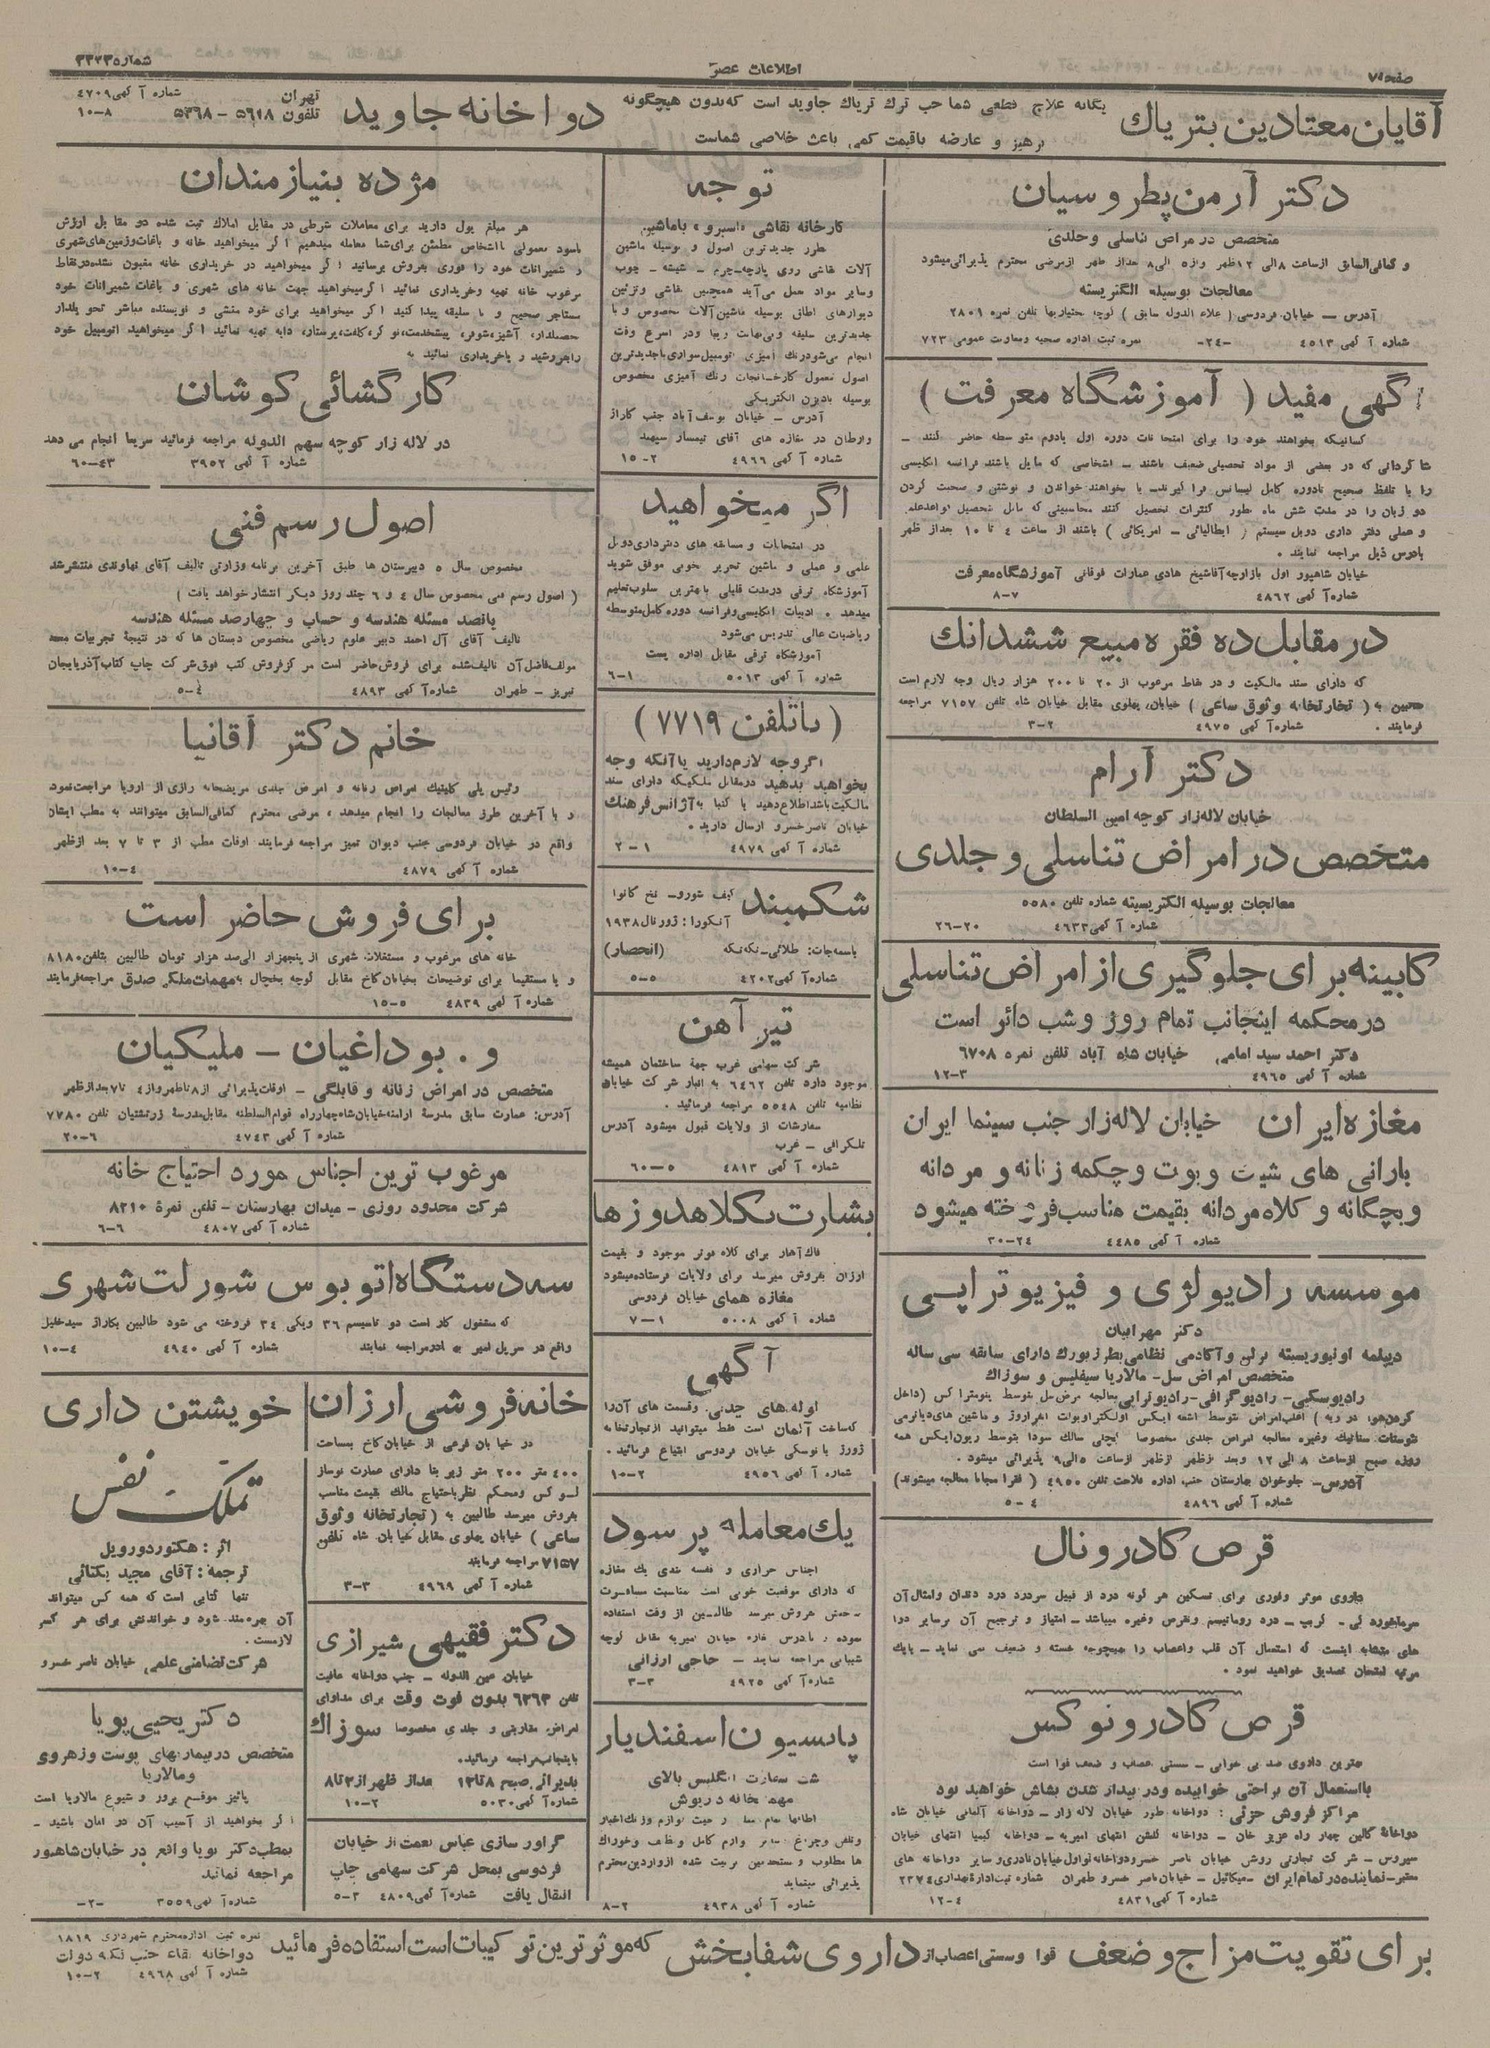 صفحه ۷
اطلاعات عصر
شماره ۳۳۷۳
آقایان معتادین بتریاك
یگانه علاج قطعی شما حب ترك تریاك جاوید است که بدون هیچگونه
پرهیز و عارضه باقیمت کمی باعث خلاصی شماست
دواخانه جاوید
تهران
تلفون ۵۶۱۸ - ۵۳۶۸
شماره آگهی ۴۷۰۹
۱۰-۸
دکتر آرمن پطروسیان
متخصص در مراض تناسلی وجلدی
و کمافی‌السابق از ساعت ۸ الی ۱۲ ظهر و از ۵ الی ۸ بعداز ظهر از مرضی محترم پذیرائی میشود
معالجات بوسیله الکتریسته
آدرس - خیابان فردوسی ( علاء الدوله سابق ) کوچه بختیاریها تلفن نمره ۲۸۰۱
شماره آگهی ۴۵۱۳ -۲۴- نمره ثبت اداره صحیه ومعاونت عمومی ۷۲۳
آگهی مفید ( آموزشگاه معرفت )
کسانیکه بخواهند خود را برای امتحانات دوره اول یادوم متوسطه حاضر کنند -
شاگردانی که در بعضی از مواد تحصیلی ضعیف باشند - اشخاصی که مایل باشند فرانسه انگلیسی
را با تلفظ صحیح تادوره کامل لیسانس فرا گیرند- یا بخواهند خواندن و نوشتن و صحبت کردن
دو زبان را در مدت شش ماه بطور کنترات تحصیل کنند محاسبینی که مایل بتحصیل قواعد علمی
و عملی دفتر داری دوبل سیستم ( ایطالیائی - امریکائی ) باشند از ساعت ۴ تا ۱۰ بعداز ظهر
بادرس ذیل مراجعه نمایند .
خیابان شاهپور اول بازارچه آقاشیخ هادی عمارات فوقانی آموزشگاه معرفت
شماره آگهی ۴۸۶۲ ۸-۷
در مقابل ده فقره مبیع ششدانك
که دارای سند مالکیت و در نقاط مرغوب از ۲۰ تا ۲۰۰ هزار ریال وجه لازم است
طالبین به ( تجارتخانه وثوق ساعی ) خیابان پهلوی مقابل خیابان شاه تلفن ۷۱۵۷ مراجعه
فرمایند . شماره آگهی ۴۹۷۵ ۳-۲
دکتر آرام
خیابان لاله‌زار کوچه امین السلطان
متخصص در امراض تناسلی و جلدی
معالجات بوسیله الکتریسیته شماره تلفن ۵۵۸۰
شماره آگهی ۴۶۳۳ ۲۶-۲۰
کابینه برای جلوگیری از امراض تناسلی
در محکمه اینجانب تمام روز و شب دائر است
دکتر احمد سید امامی خیابان شاه آباد تلفن نمره ۶۷۰۸
شماره آگهی ۴۹۶۵ ۱۲-۳
مغازه ایران خیابان لاله‌زار جنب سینما ایران
بارانی های شیك و بوت و چکمه زنانه و مردانه
و بچگانه و کلاه مردانه بقیمت مناسب فروخته میشود
شماره آگهی ۴۴۸۵ ۳۰-۲۴
موسسه رادیولژی و فیزیوتراپی
دکتر مهرابیان
دیپلمه اونیورسیته برلن و آکادمی نظامی پطرزبورك دارای سابقه سی ساله
متخصص امراض سل- مالاریا سیفلیس و سوزاك
رادیوسکپی- رادیوگرافی- رادیوتراپی
آدرس- جلوخوان بهارستان جنب اداره فلاحت تلفن ۴۹۵۵ ( فقرا مجانا معالجه میشوند)
شماره آگهی ۴۸۹۶ ۵-۴
قرص کادرونال
داروی موثر وفوری برای تسکین هر گونه درد از قبیل سردرد درد دندان وامثال آن
سرماخوردگی- گریپ- درد روماتیسم ونقرس وغیره میباشد- امتیاز و ترجیح آن برسایر دوا
های مشابه اینست که استعمال آن قلب واعصاب را هیچوجه خسته و ضعیف نمی نماید- بایك
مرتبه امتحان تصدیق خواهید نمود .
قرص کادرونوکس
بهترین داروی ضد بی خوابی - سستی عصاب و ضعف قوا است
بااستعمال آن براحتی خوابیده ودر بیدار شدن بشاش خواهید بود
مراکز فروش جزئی : دواخانه طور خیابان لاله زار- دواخانه آلمانی خیابان شاه
دواخانهٔ کالین چهار راه عزیز خان - دواخانه گلشن انتهای امیریه - دواخانه کیمیا انتهای خیابان
سیروس - شرکت تجارتی روش خیابان ناصر خسرو دواخانه نو اول خیابان نادری و سایر دواخانه های
معتبر- نماینده در تمام ایران - میکائیل - خیابان ناصر خسرو طهران شماره ثبت ادارهٔ بهداری ۲۳۷۴
شماره آگهی ۴۸۳۱ ۱۲-۴
توجه
کارخانه نقاشی «اسپرو» باماشین
بطور جدیدترین اصول و بوسیله ماشین
آلات نقاشی روی پارچه- چرم - شیشه - چوب
وسایر مواد بعمل می‌آید همچنین نقاشی وتزئین
دیوارهای اطاق بوسیله ماشین‌آلات مخصوص و با
جدیدترین سلیقه وبی‌نهایت زیبا ودر اسرع وقت
انجام می‌شود رنك آمیزی اتومبیل سواری باجدیدترین
اصول معمول کارخانجات رنك آمیزی مخصوص
بوسیله بادبزن الکتریکی
آدرس - خیابان یوسف‌آباد جنب گاراژ
وارطان در مغازه های آقای تیمسار سپهبد
شماره آگهی ۴۹۶۶ ۱۵-۲
اگر میخواهید
در امتحانات و مسابقه های دفترداری دوبل
علمی و عملی و ماشین تحریر بخوبی موفق شوید
آموزشگاه ترقی درمدت قلیلی با بهترین سلوب تعلیم
میدهد . ادبیات انگلیسی وفرانسه دوره کامل متوسطه
ریاضیات عالی تدریس می‌شود
آموزشگاه ترقی مقابل اداره پست
شماره آگهی ۵۰۱۳ ۶-۱
( با تلفن ۷۷۱۹ )
اگر وجه لازم دارید یا آنکه وجه
بخواهید بدهید در مقابل ملکیکه دارای سند
مالکیت باشد اطلاع دهید یا کتبا به آژانس فرهنك
خیابان ناصر خسرو ارسال دارید .
شماره آگهی ۴۹۷۹ ۲-۱
شکمبند
کیف شورو- نخ کانوا
آنکورا : ژورنال ۱۹۳۸
باسمه‌جات: طلائی- تکه‌تکه (انحصار)
شماره آگهی ۴۲۰۲ ۵-۵
تیر آهن
شرکت سهامی غرب جهة ساختمان همیشه
موجود دارد تلفن ۶۴۶۲ به انبار شرکت خیابان
نظامیه تلفن ۵۵۴۸ مراجعه فرمائید .
سفارشات از ولایات قبول میشود آدرس
تلگرافی - غرب
شماره آگهی ۴۸۱۳ ۶۰-۵
بشارت بکلاهدوزها
فاك آهار برای کلاه موتر موجود و بقیمت
ارزان بفروش میرسد برای ولایات فرستاده میشود
مغازه همای خیابان فردوسی
شماره آگهی ۵۰۰۸ ۷-۱
آگهی
لوله های چدنی وقسمت های آن را
که ساخت آلمان است فقط میتوانید از تجارتخانه
ژورژ یانوسکی خیابان فردوسی ابتیاع فرمائید .
شماره آگهی ۴۹۵۶ ۱۰-۲
یك معامله پر سود
اجناس خرازی و قفسه بندی یك مغازه
که دارای موقعیت خوبی است بمناسبت مسافرت
صاحبش بفروش میرسد طالبین از وقت استفاده
نموده بادرس مغازه خیابان امیریه مقابل کوچه
شیبانی مراجعه نمایند - حاجی ارزانی
شماره آگهی ۴۹۲۵ ۳-۳
پانسیون اسفندیار
پشت سفارت انگلیس بالای
مهمانخانه داریوش
ها مطلوب و مستخدمین تربیت شده از واردین محترم
پذیرائی مینماید
شماره آگهی ۴۹۳۸ ۸-۲
مژده بنیازمندان
هر مبلغ پول دارید برای معاملات شرطی در مقابل املاك ثبت شده دو مقابل ارزش
باسود معمولی با اشخاص مطمئن برای شما معامله میدهیم اگر میخواهید خانه و باغات وزمین‌های شهری
و شمیرانات خود را فوری بفروش برسانید اگر میخواهید در خریداری خانه مغبون نشده در نقاط
مرغوب خانه تهیه وخریداری نمائید اگر میخواهید جهت خانه های شهری و باغات شمیرانات خود
مستاجر صحیح و با سلیقه پیدا کنید اگر میخواهید برای خود منشی و نویسنده مباشر تحویلدار
تحصلدار، آشپز، شوفر، پیشخدمت، نوکر، کلفت، پرستار، دایه تهیه نمائید اگر میخواهید اتومبیل خود
را بفروشید و یاخریداری نمائید به
کارگشائی کوشان
در لاله زار کوچه سهم الدوله مراجعه فرمائید سریعا انجام می دهد
شماره آگهی ۳۹۵۲ ۶۰-۴۳
اصول رسم فنی
مخصوص سال ۵ دبیرستان ها طبق آخرین برنامه وزارتی تالیف آقای نهاوندی منتشر شد
( اصول رسم فنی مخصوص سال ۴ و ۶ چند روز دیگر انتشار خواهد یافت )
پانصد مسئله هندسه و حساب و چهارصد مسئله هندسه
تالیف آقای آل احمد دبیر علوم ریاضی مخصوص دبستان ها که در نتیجهٔ تجربیات ممتد
مولف فاضل آن تالیف شده برای فروش حاضر است مرکز فروش کتب فوق شرکت چاپ کتاب آذربایجان
تبریز - طهران شماره آگهی ۴۸۹۳ ۵-۴
خانم دکتر آقانیا
رئیس پلی کلینیك امراض زنانه و امراض جلدی مریضخانه رازی از اروپا مراجعت نمود
و با آخرین طرز معالجات را انجام میدهد، مرضی محترم کمافی‌السابق میتوانند به مطب ایشان
واقع در خیابان فردوسی جنب دیوان تمیز مراجعه فرمایند اوقات مطب از ۳ تا ۷ بعد از ظهر
شماره آگهی ۴۸۷۹ ۱۰-۴
برای فروش حاضر است
خانه های مرغوب و مستغلات شهری از پنجهزار الی سد هزار تومان طالبین بتلفن ۸۱۸۰
و یا مستقیما برای توضیحات بخیابان کاخ مقابل کوچه یخچال به مهمات ملکی صدق مراجعه فرمایند
شماره آگهی ۴۸۳۹ ۱۵-۵
و . بوداغیان - ملیکیان
متخصص در امراض زنانه و قابلگی - اوقات پذیرائی از ۸ تا ظهر و از ۴ تا ۷ بعد از ظهر
آدرس: عمارت سابق مدرسهٔ ارامنه خیابان شاه چهارراه قوام‌السلطنه مقابل مدرسهٔ زرتشتیان تلفن ۷۷۸۰
شماره آگهی ۴۷۴۳ ۲۰-۶
مرغوب ترین اجناس مورد احتیاج خانه
شرکت محدود روزی - میدان بهارستان - تلفن نمرهٔ ۸۲۱۰
شماره آگهی ۴۸۰۷ ۶-۶
سه دستگاه اتوبوس شورلت شهری
که مشغول کار است دو تاسیسم ۳۶ ویکی ۳۴ فروخته می شود طالبین بگاراژ سید خلیل
شماره آگهی ۴۹۴۰ ۱۰-۴
خانه فروشی ارزان
در خیابان فرعی از خیابان کاخ بمساحت
۴۰۰ متر ۲۰۰ متر زیر بنا دارای عمارت نوساز
لوکس ومحکم نظر باحتیاج مالك بقیمت مناسب
بفروش میرسد طالبین به ( تجارتخانه وثوق
ساعی ) خیابان پهلوی مقابل خیابان شاه تلفن
۷۱۵۷ مراجعه فرمایند
شماره آگهی ۴۹۶۹ ۳-۳
دکتر فقیهی شیرازی
خیابان عین الدوله - جنب دواخانه عافیت
تلفن ۶۲۶۳ بدون فوت وقت برای مداوای
امراض مقاربتی و جلدی مخصوصا سوزاك
باینجانب مراجعه فرمائید.
پذیرائی صبح ۸ تا ۱۲ بعداز ظهر از ۲ تا ۸
شماره آگهی ۵۰۳۰ ۱۰-۲
گراور سازی عباس نعمت از خیابان
فردوسی بمحل شرکت سهامی چاپ
انتقال یافت شماره آگهی ۴۸۰۹ ۵-۲
خویشتن داری
تملك نفس
اثر : هکتور دورویل
ترجمه : آقای مجید یکتائی
تنها کتابی است که همه کس میتواند
آن بهره‌مند شود و خواندنش برای هر کس
لازمست .
شرکت تضامنی علمی خیابان ناصر خسرو
دکتر یحیی پویا
متخصص در بیماریهای پوست وزهروی
ومالاریا
پائیز موقع بروز و شیوع مالاریا است
اگر بخواهید از آسیب آن در امان باشید -
بمطب دکتر پویا واقع در خیابان شاهپور
مراجعه نمائید
شماره آگهی ۳۵۵۹ -۲-
برای تقویت مزاج و ضعف قوا وسستی اعصاب از داروی شفابخش که موثرترین ترکیبات است استفاده فرمائید
نمره ثبت اداره محترم شهرداری ۱۸۱۹
دواخانه بقاء جنب تکیه دولت
شماره آگهی ۴۹۶۸ ۱۰-۲